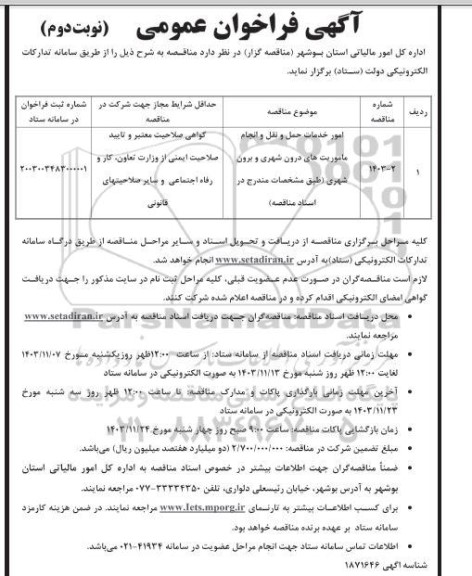 آگهی فراخوان عمومی (نوبت‌دوم)
اداره کل امور مالیاتی استان بوشهر (مناقصه گزار) در نظر دارد مناقصه به شرح ذیل را از طریق سامانه تدارکات
الکترونیکی دولت (ستاد) برگزار نماید.
ردیف
شماره مناقصه
موضوع مناقصه
حداقل شرایط مجاز جهت شرکت در مناقصه
شماره ثبت فراخوان در سامانه ستاد
۱
۱۴۰۳-۲
امور خدمات حمل و نقل و انجام
ماموریت های درون شهری و برون
شهری (طبق مشخصات مندرج در
اسناد مناقصه)
گواهی صلاحیت معتبر و تایید
صلاحیت ایمنی از وزارت تعاون، کار و
رفاه اجتماعی و سایر صلاحیتهای
قانونی
۲۰۰۳۰۰۳۴۸۳۰۰۰۰۰۱
کلیه مراحل برگزاری مناقصه از دریافت و تحویل اسناد و سایر مراحل مناقصه از طریق درگاه سامانه
تدارکات الکترونیکی (ستاد) به آدرس www.setadiran.ir انجام خواهد شد.
لازم است مناقصه‌گران در صورت عدم عضویت قبلی، کلیه مراحل ثبت نام در سایت مذکور را جهت دریافت
گواهی امضای الکترونیکی اقدام کرده و در مناقصه اعلام شده شرکت کنند.
• محل دریافت اسناد مناقصه: مناقصه‌گران جهت دریافت اسناد مناقصه به آدرس www.setadiran.ir
مراجعه نمایند.
• مهلت زمانی دریافت اسناد مناقصه از سامانه ستاد: از ساعت ۱۲:۰۰ظهر روزیکشنبه مورخ ۱۴۰۳/۱۱/۰۷
لغایت ۱۲:۰۰ ظهر روز شنبه مورخ ۱۴۰۳/۱۱/۱۳ به صورت الکترونیکی در سامانه ستاد
• آخرین مهلت زمانی بارگذاری پاکات و مدارک مناقصه: تا ساعت ۱۲:۰۰ ظهر روز سه شنبه مورخ
۱۴۰۳/۱۱/۲۳ به صورت الکترونیکی در سامانه ستاد
• زمان بازگشایی پاکات مناقصه: ساعت ۹:۰۰ صبح روز چهار شنبه مورخ ۱۴۰۳/۱۱/۲۴
• مبلغ تضمین شرکت در مناقصه: ۲/۷۰۰/۰۰۰/۰۰۰ (دو میلیارد هفتصد میلیون ریال) می‌باشد.
• ضمناً مناقصه‌گران جهت اطلاعات بیشتر در خصوص اسناد مناقصه به اداره کل امور مالیاتی استان
بوشهر به آدرس بوشهر، خیابان رئیسعلی دلواری، تلفن ۳۳۳۳۴۳۵۰-۰۷۷ مراجعه نمایند.
• برای کسب اطلاعات بیشتر به تارنمای www.Iets.mporg.ir مراجعه نمایند. در ضمن هزینه کارمزد
سامانه ستاد بر عهده برنده مناقصه خواهد بود.
• اطلاعات تماس سامانه ستاد جهت انجام مراحل عضویت در سامانه ۴۱۹۳۴-۰۲۱ می‌باشد.
شناسه آگهی ۱۸۷۱۶۴۶